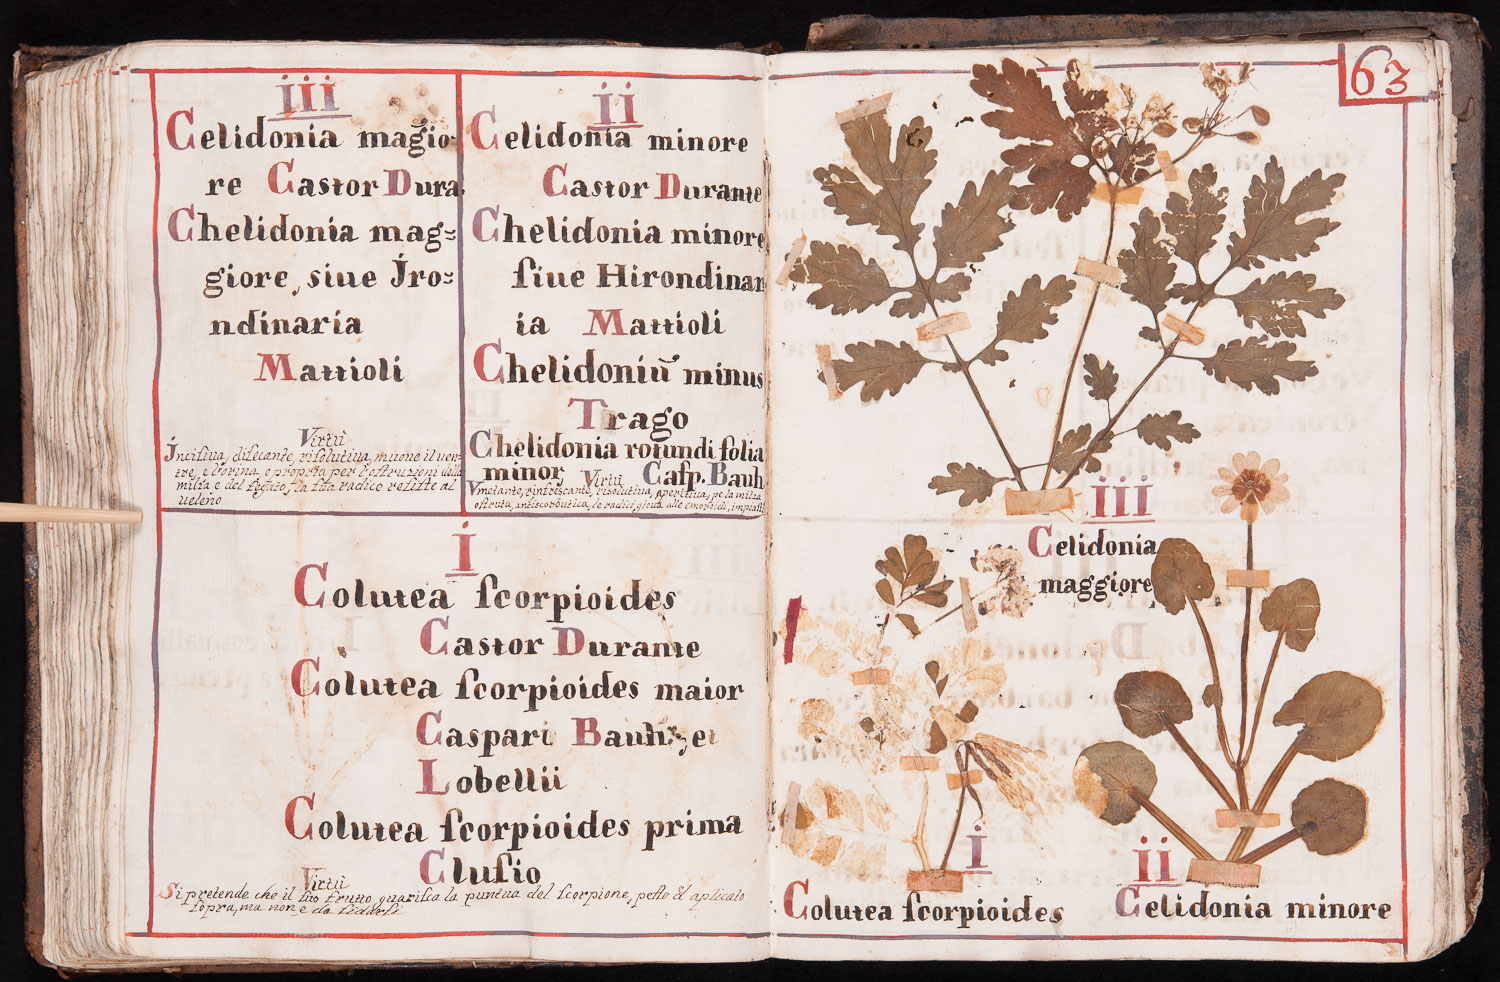 iii
Celidonia magio-
re Castor Dura
Chelidonia mag=
giore, siue Jro=
ndinaria
Mattioli
Virtù
Jncisiua, disecante, risolutiua, muoue il uen-
tre, e l'orina, e propria per l'ostruzioni della
milza e del fegato, la sua radice resiste al
ueleno
ii
Celidonia minore
Castor Durante
Chelidonia minore
siue Hirondinar
ia Mattioli
Chelidoniū minus
Trago
Chelidonia rotundifolia
minor Casp. Bauh
Virtù
Vmetante, rinfrescante, risolutiua, aperitiua, per la milza
ostruta, antiscorbutica, le radici gioua alle emoroidi,
i
Colutea scorpioides
Castor Durante
Colutea scorpioides maior
Caspari Bauh: et
Lobellii
Colutea scorpioides prima
Clusio
Virtù
Si pretende che il suo frutto guarisca la puntua del scorpione, pesto & aplicato
sopra, ma non e da fidarsi
63
iii
Celidonia
maggiore
i
Colutea scorpioides
ii
Celidonia minore